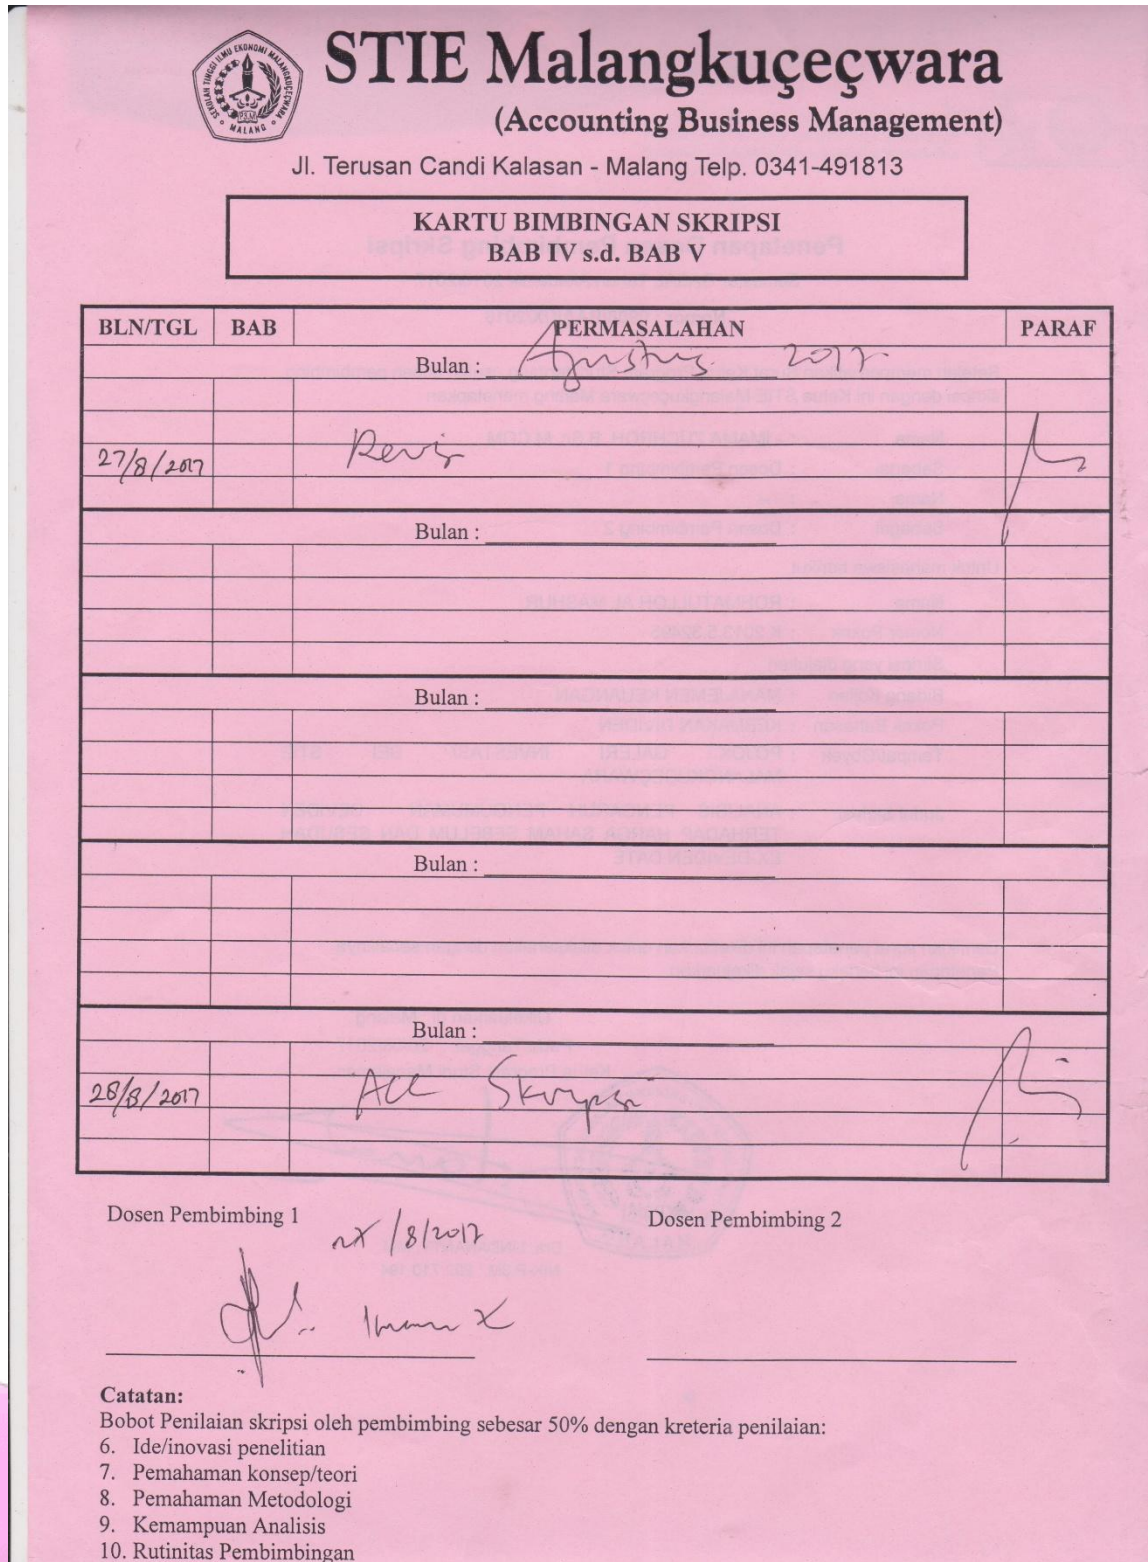 SEKOLAH TINGGI ILMU EKONOMI MALANGKUÇEÇWARA
MALANG
STIE Malangkuçeçwara
(Accounting Business Management)
Jl. Terusan Candi Kalasan - Malang Telp. 0341-491813
KARTU BIMBINGAN SKRIPSI
BAB IV s.d. BAB V
BLN/TGL BAB PERMASALAHAN PARAF
Bulan : Agustus 2017
27/8/2017 Revisi
Bulan :
Bulan :
Bulan :
Bulan :
28/8/2017 ACC Skripsi
Dosen Pembimbing 1 Dosen Pembimbing 2
/8/2017
Catatan:
Bobot Penilaian skripsi oleh pembimbing sebesar 50% dengan kreteria penilaian:
6. Ide/inovasi penelitian
7. Pemahaman konsep/teori
8. Pemahaman Metodologi
9. Kemampuan Analisis
10. Rutinitas Pembimbingan